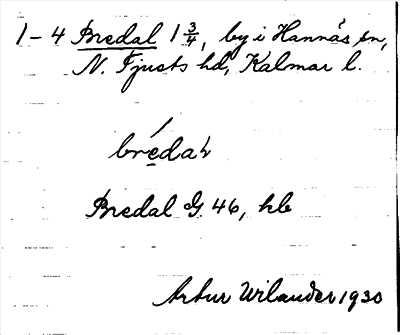 1-4 Bredal 1 3/4, by i Hannäs sn,
N. Tjusts hd, Kalmar l.
bréda
Bredal G. 46, hb
Artur Wilander 1930